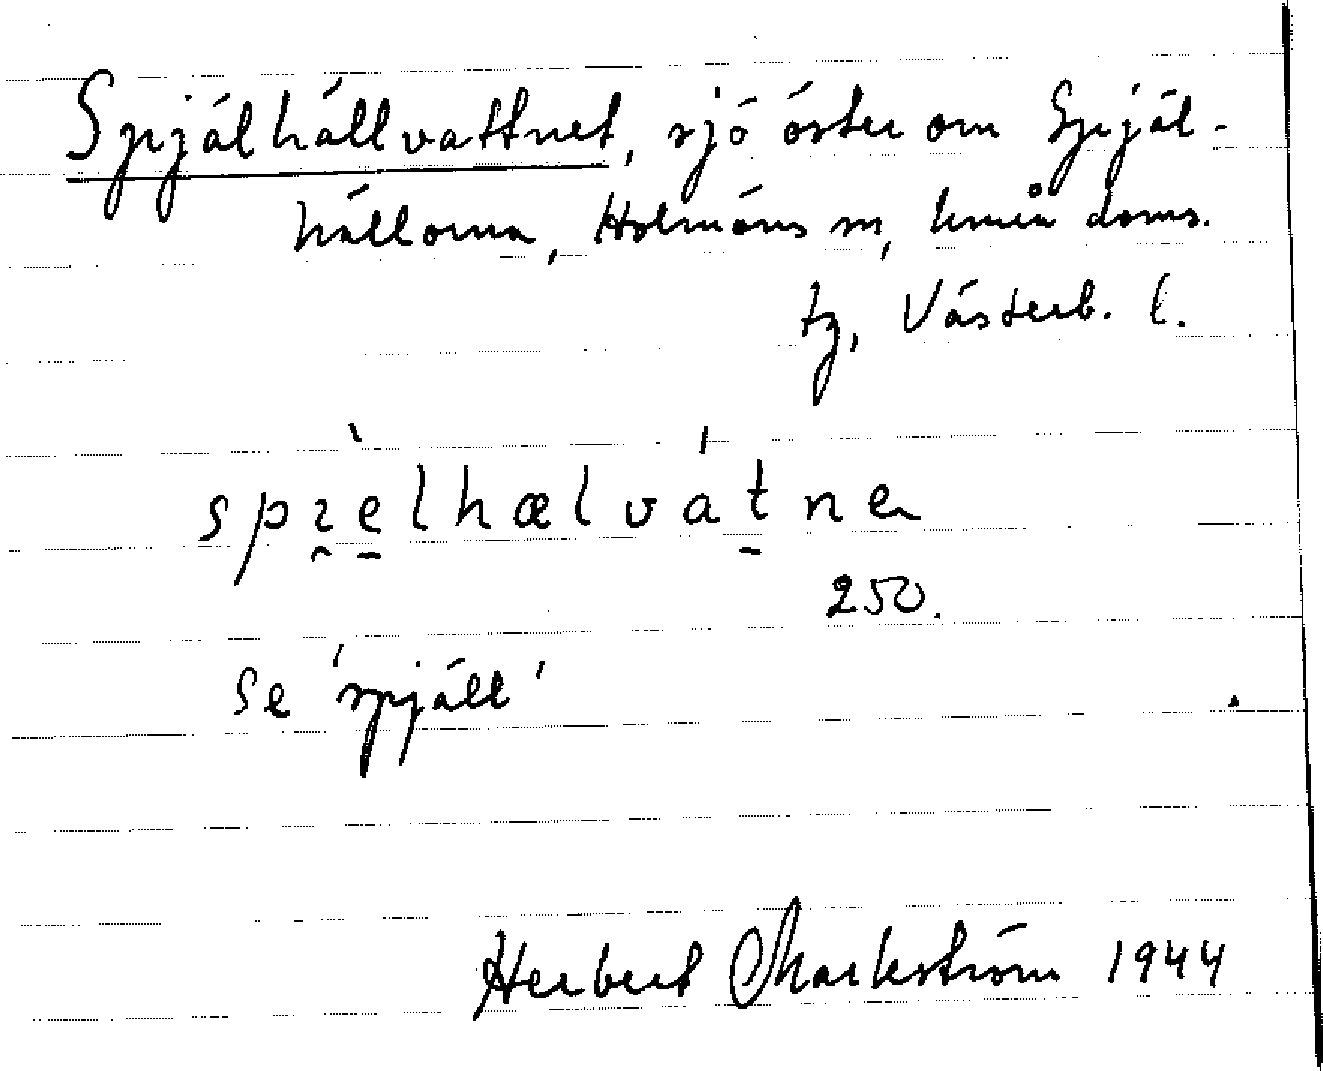 Spjälhällvattnet, sjö öster om Spjäl-
hällorna, Holmöns sn, Umeå doms.
tg, Västerb. l.
spı̯e̠lhælvát̠ne
250.
Se 'spjäll'
Herbert Markström 1944